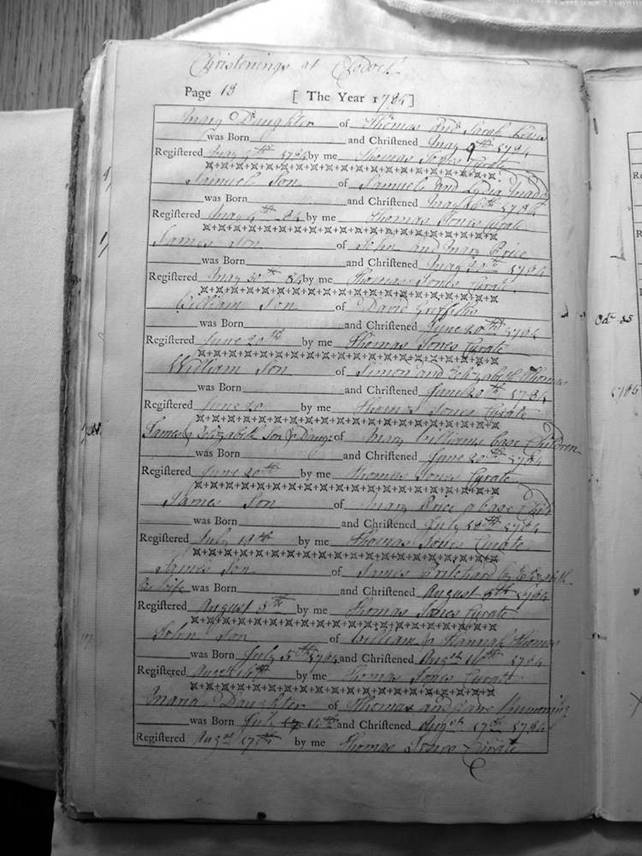 Christenings at Clodock
Page 13 [ The Year 1784]
Mary Daughter of Thomas and Sarah
was Born and Christened May 9th 1784
Registered May 9th 1784 by me Thomas Jones Curate
Samuel Son of Samuel and Lydia
was Born and Christened May 1784
Registered May 84 by me Thomas Jones Curate
James Son of John and Mary Price
was Born and Christened May 30th 1784
Registered May 30th 84 by me Thomas Jones Curate
William Son of David Griffiths
was Born and Christened June 20th 1784
Registered June 20th by me Thomas Jones Curate
William Son of Simon and Elizabeth Thomas
was Born and Christened June 20th 1784
Registered June 20 by me Thomas Jones Curate
James & Elizabeth Son & Daugr of Mary Williams base Children
was Born and Christened June 20th 1784
Registered June 20th by me Thomas Jones Curate
James Son of Mary Price a base Child
was Born and Christened July 18th 1784
Registered July 18th by me Thomas Jones Curate
James Son of James Pritchard by Elizabeth
his wife was Born and Christened August 5th 1784
Registered August 5th by me Thomas Jones Curate
John Son of William & Hannah Thomas
was Born July 5th 1784 and Christened Augst 16th 1784
Registered August 16th by me Thomas Jones Curate
Maria Daughter of Thomas and Jane
was Born July 16th and Christened Augst 17th 1784
Registered Augst 17th by me Thomas Jones Curate